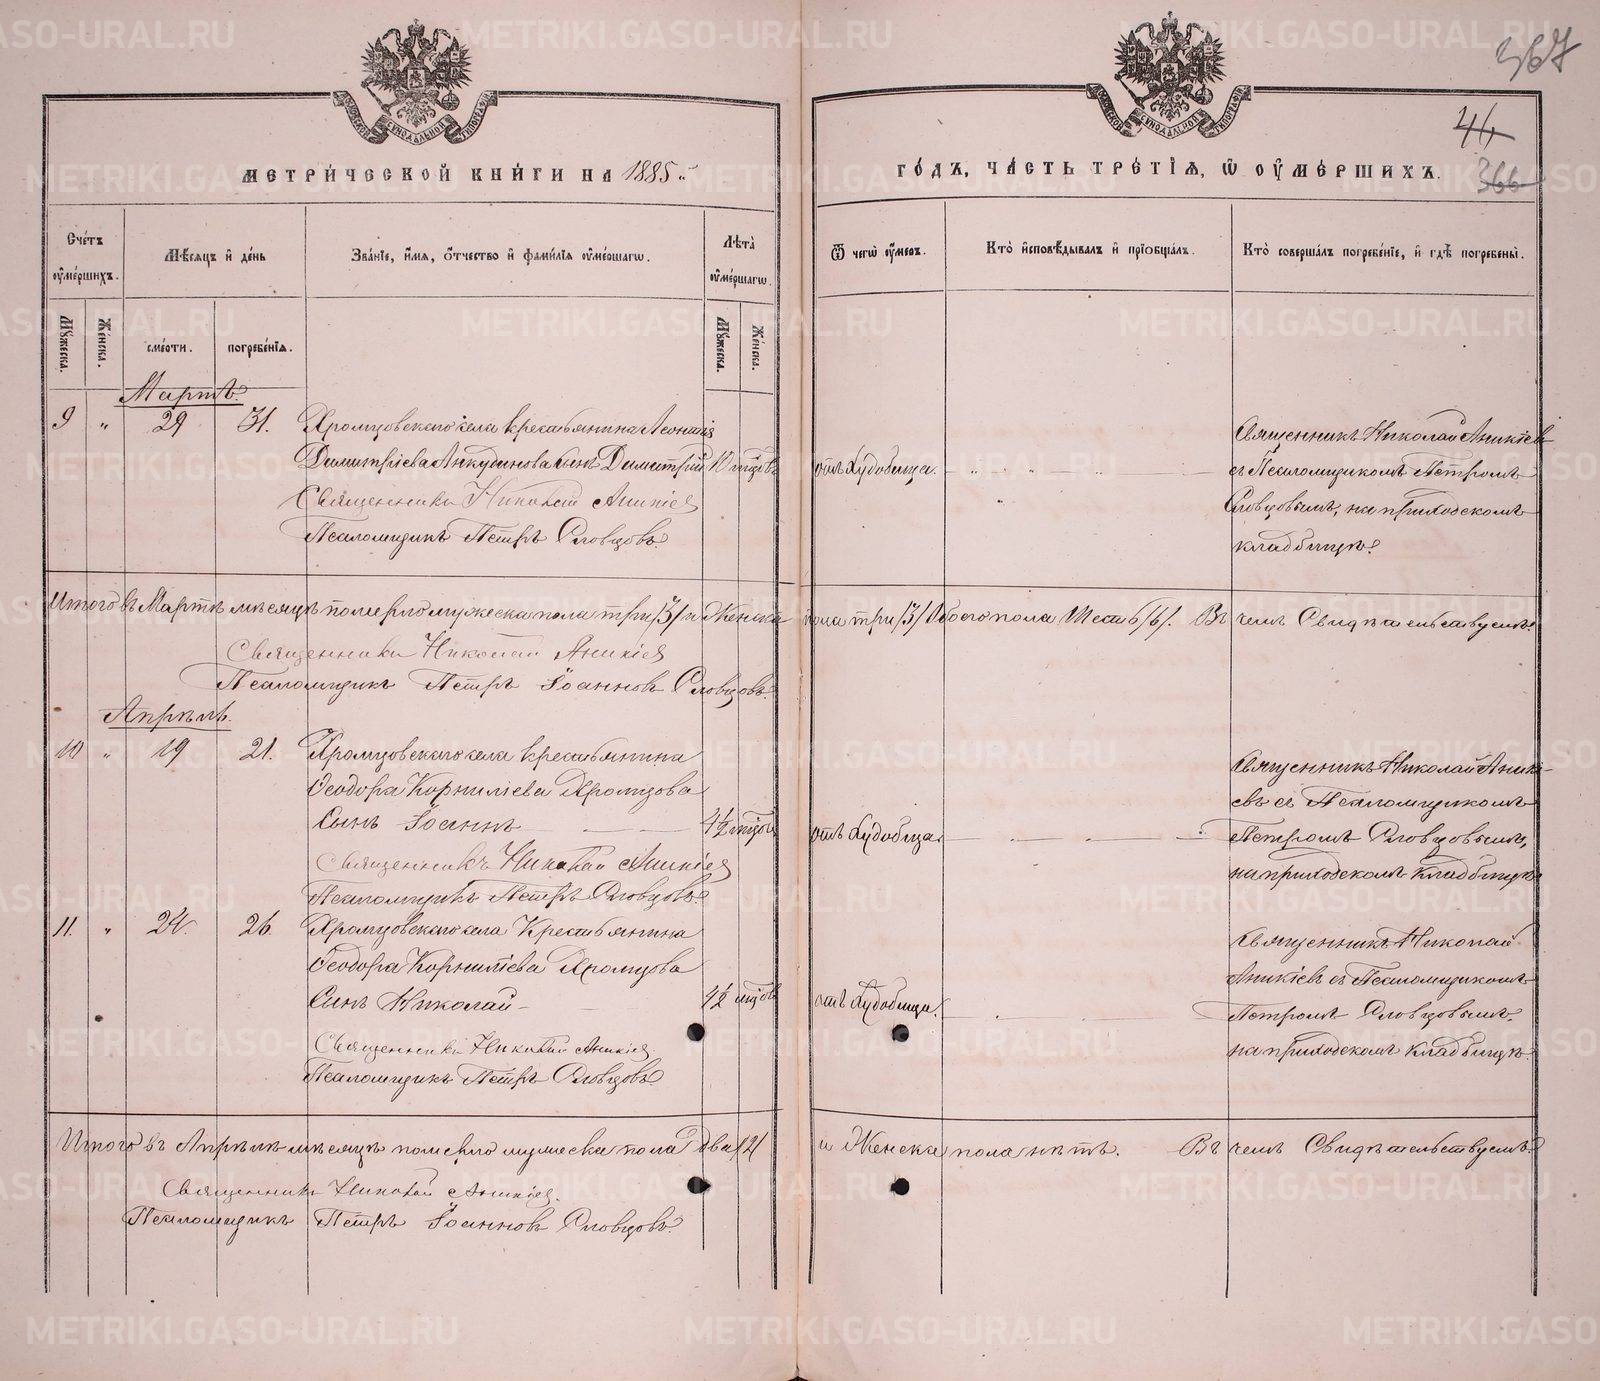 METRIKI.GASO-URAL.RU
367
44
366
МЕТРИ́ЧЕСКОЙ КНИ́ГИ НА 1885
ГО́ДЪ, ЧА́СТЬ ТРЕ́ТІѦ, Ѿ ОУ҆МЕ́РШИХЪ.
Сче́тъ оу҆ме́ршихъ.
Мѣ́сѧцъ и҆ де́нь
Зва́нїе, и҆́мѧ, ѻ҆́тчество и҆ фами́лїѧ оу҆ме́ршагѡ.
Лѣ́та оу҆ме́ршагѡ.
Ѿ чегѡ̀ оу҆́меръ.
Кто̀ и҆сповѣ́дывалъ и҆ прїѡбща́лъ.
Кто̀ соверша́лъ погребе́нїе, и҆ гдѣ̀ погребены̀.
Мꙋ́жеска.
Же́нска.
сме́рти.
погребе́нїѧ.
Мꙋ́жеска.
Же́нска.
Мартъ
9 " 29 31. Хромцовскаго села крестьянина Леонтія
Димитріева Анкудинова сынъ Димитрій 10 мѣсяцовъ отъ худобища.
Священникъ Николай Аникіев
Псаломщикъ Петръ Словцовъ.
Священникъ Николай Аникіевъ
съ Псаломщикомъ Петромъ
Словцовымъ, на приходскомъ
кладбищѣ.
Итого въ Мартѣ мѣсяцѣ померло мужеска пола три /3/ и Женска пола три /3/ Обоего пола Шесть /6/. Въ чемъ Свидѣтельствуемъ:
Священникъ Николай Аникіев
Псаломщикъ Петръ Іоанновъ Словцовъ.
Апрѣль.
10 " 19 21. Хромцовскаго села крестьянина
Ѳеодора Корниліева Хромцова
Сынъ Іоаннъ 1½ отъ худобища.
Священникъ Николай Аникіев
Псаломщикъ Петръ Словцовъ.
Священникъ Николай Аникі-
евъ съ Псаломщикомъ
Петромъ Словцовымъ,
на приходскомъ кладбищѣ.
11. " 24. 26. Хромцовскаго села Крестьянина
Ѳеодора Корниліева Хромцова
Сынъ Николай 1½ отъ худобища.
Священникъ Николай Аникіев
Псаломщикъ Петръ Словцовъ.
Священникъ Николай
Аникіевъ съ Псаломщикомъ
Петромъ Словцовымъ,
на приходскомъ кладбищѣ.
Итого въ Апрѣлѣ мѣсяцѣ померло мужеска пола два /2/ и Женска пола нѣтъ. Въ чемъ Свидѣтельствуемъ:
Священникъ Николай Аникіев.
Псаломщикъ Петръ Іоанновъ Словцовъ.